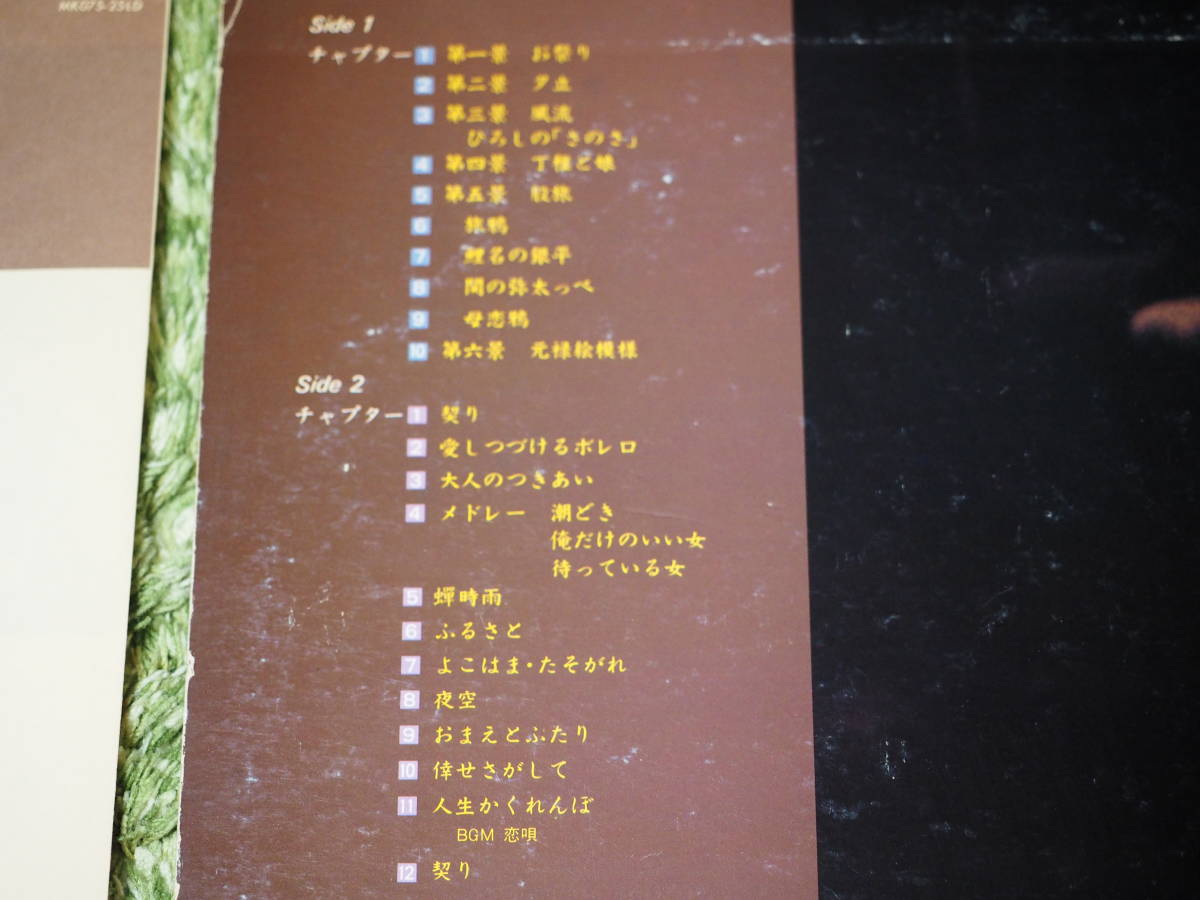 Side 1
チャプター 1 第一景 お祭り
2 第二景 夕立
3 第三景 風流
ひろしの「さのさ」
4 第四景 丁稚と娘
5 第五景 股旅
6 旅鴨
7 鯉名の銀平
8 関の弥太っぺ
9 母恋鴨
10 第六景 元禄絵模様
Side 2
チャプター 1 契り
2 愛しつづけるボレロ
3 大人のつきあい
4 メドレー 潮どき
俺だけのいい女
待っている女
5 蟬時雨
6 ふるさと
7 よこはま・たそがれ
8 夜空
9 おまえとふたり
10 倖せさがして
11 人生かくれんぼ
BGM 恋唄
12 契り